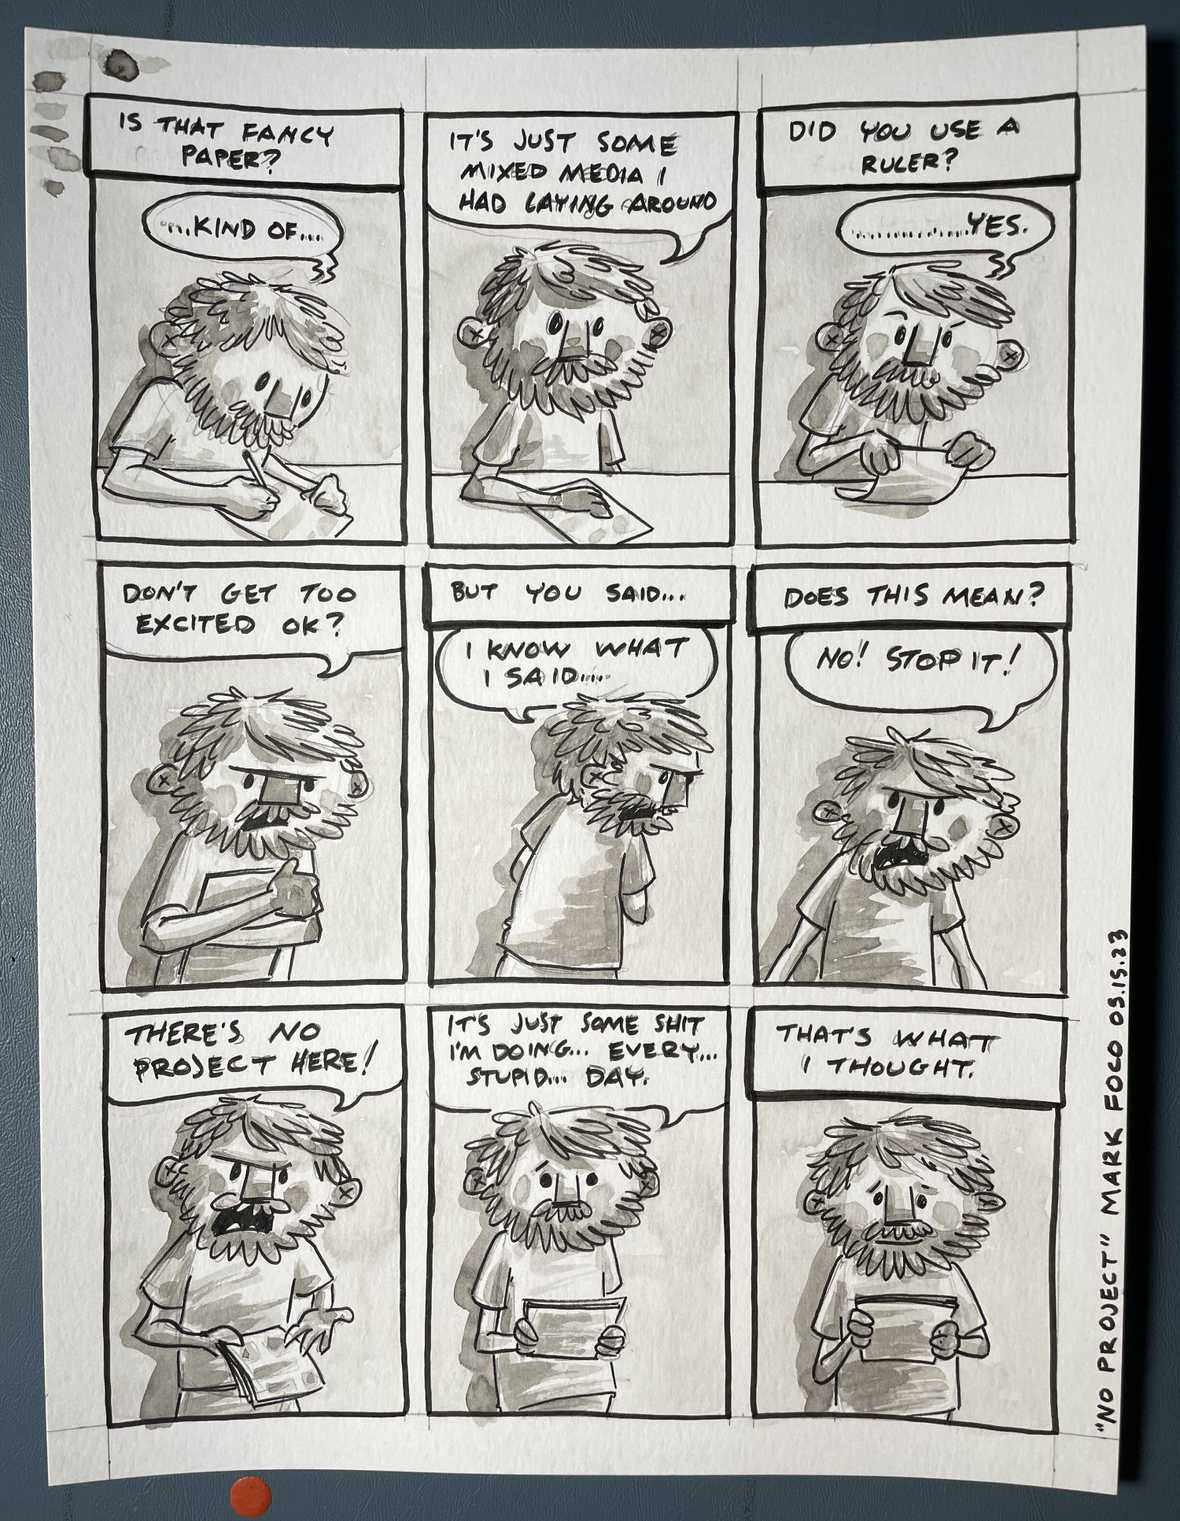 IS THAT FANCY
PAPER?
....KIND OF....
IT'S JUST SOME
MIXED MEDIA I
HAD LAYING AROUND
DID YOU USE A
RULER?
..............YES.
DON'T GET TOO
EXCITED OK?
BUT YOU SAID...
I KNOW WHAT
I SAID.....
DOES THIS MEAN?
NO! STOP IT!
THERE'S NO
PROJECT HERE!
IT'S JUST SOME SHIT
I'M DOING... EVERY...
STUPID... DAY.
THAT'S WHAT
I THOUGHT.
"NO PROJECT" MARK FOCO 03.15.23